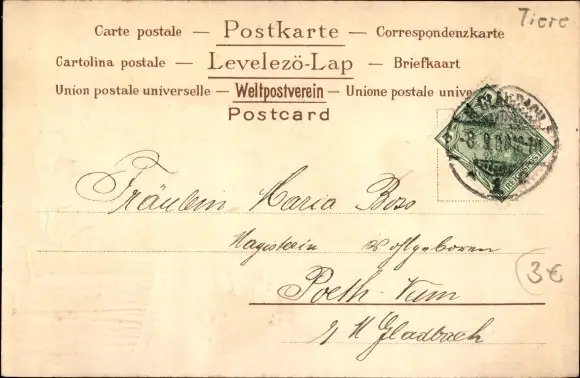 Tiere
Carte postale — Postkarte — Correspondenzkarte
Cartolina postale — Levelezö-Lap — Briefkaart
Union postale universelle — Weltpostverein — Unione postale unive
Postcard
GLADBACH
Fräulein Maria Boss
Wohlgeboren
Poeth
M Gladbach
3€